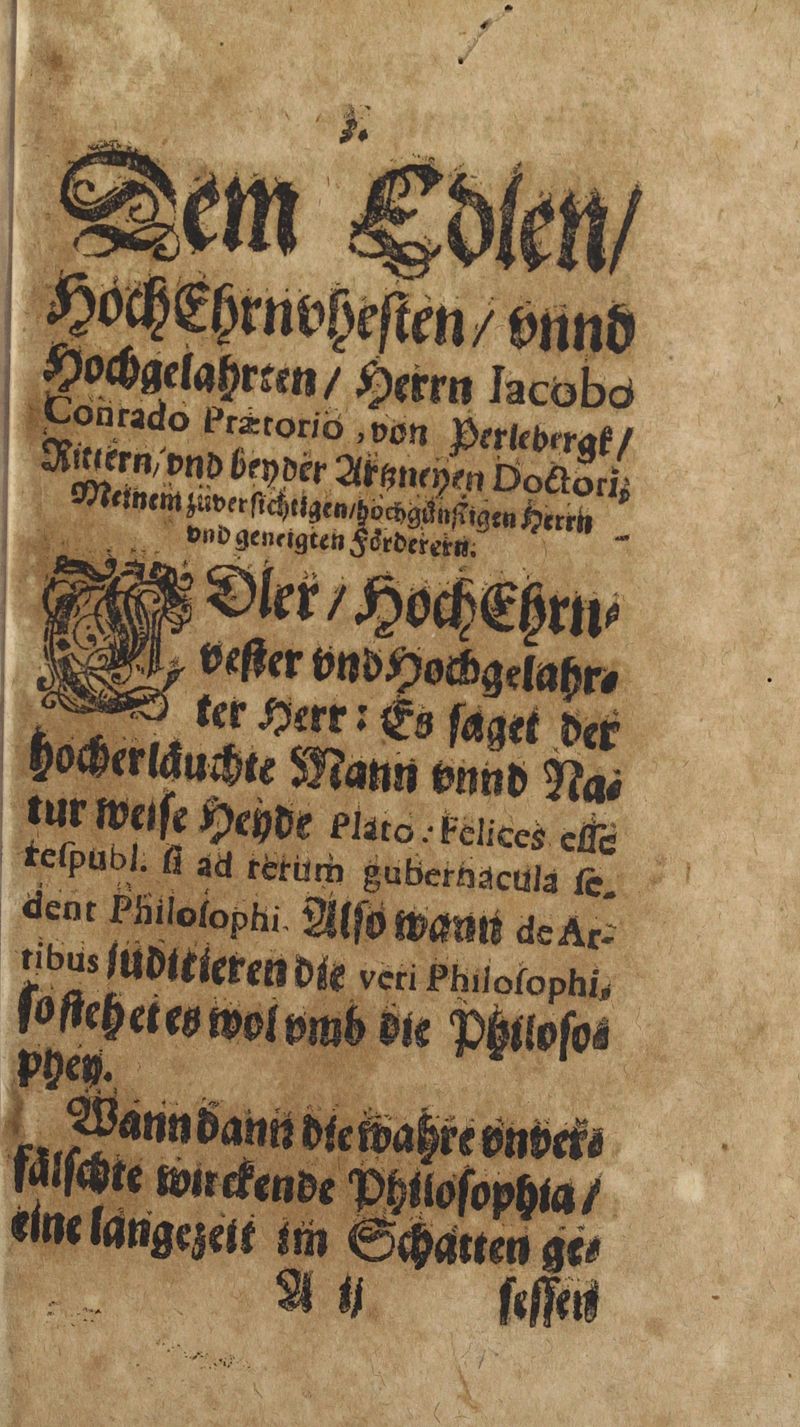 3.
Dem Edlen/
HochEhrnvhesten/ vnnd
Hochgelahrten/ Herrn Iacobo
Conrado Prætorio, von Perlebergk/
Rittern/ vnd beyder Artzneyen Doctori,
Meinem züversichtigen/ hochgünstigen Herrn
vnd geneigten Förderern.
EDler/ HochEhrn-
vester vnd Hochgelahr-
ter Herr: Es saget der
hocherläuchte Mann vnnd Na-
tur weise Heyde Plato: Felices esse
respubl. si ad rerum gubernacula se-
dent Philosophi. Also wann de Ar-
tibus Iuditieren die veri Philosophi,
so stehet es wol vmb die Philoso-
phey.
Wann dann die wahre vnver-
fälschte wirckende Philosophia/
eine langezeit im Schatten ge-
A ij sessen